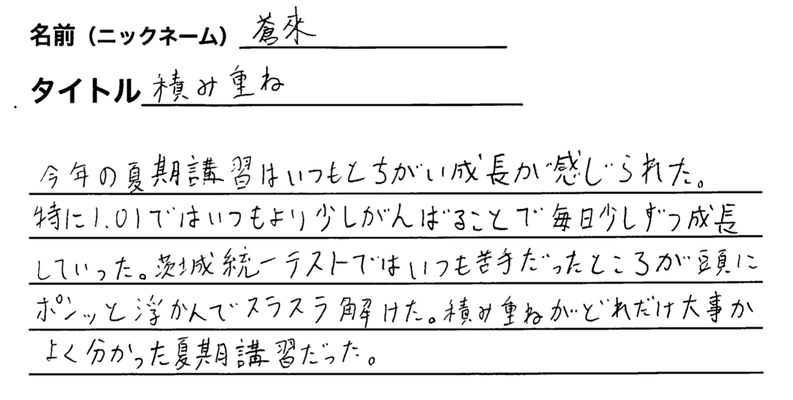 名前（ニックネーム） 蒼來
タイトル 積み重ね
今年の夏期講習はいつもとちがい成長が感じられた。
特に1.01ではいつもより少しがんばることで毎日少しずつ成長
していった。茨城統一テストではいつも苦手だったところが頭に
ポンッと浮かんでスラスラ解けた。積み重ねがどれだけ大事か
よく分かった夏期講習だった。